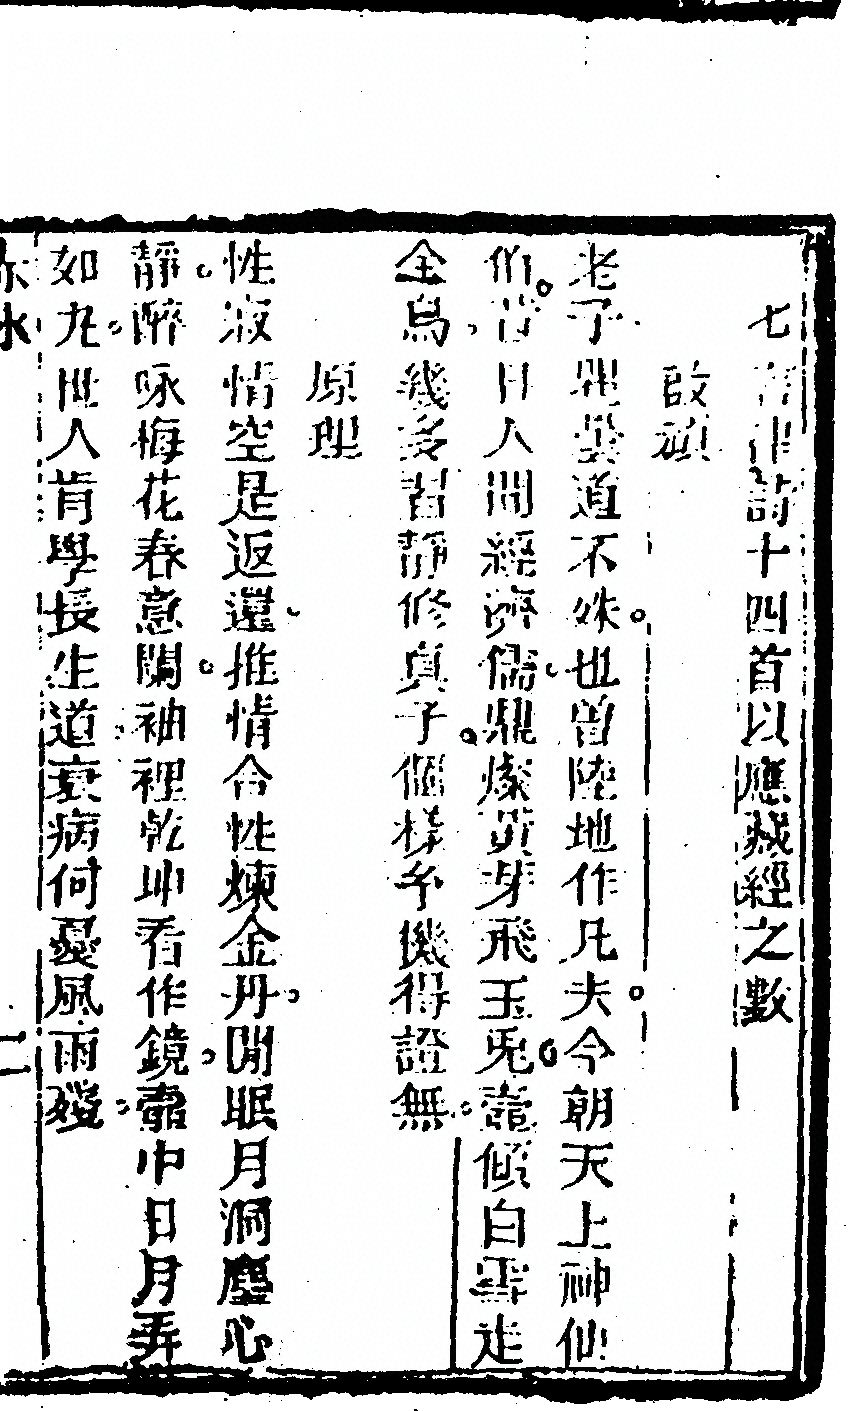 七言律詩十四首以應藏經之數
啟頑
老子瞿曇道不殊也曾陸地作凡夫今朝天上神仙
伯昔日人間經濟儒鼎燦黃芽飛玉兎壺傾白雪走
金烏幾多習靜修真子個樣予機得證無
原理
性寂情空是返還推情合性煉金丹閒眠月洞塵心
靜醉咏梅花春意闌袖裡乾坤看作鏡壺中日月弄
如九世人肯學長生道衰病何憂風雨殘
水
二